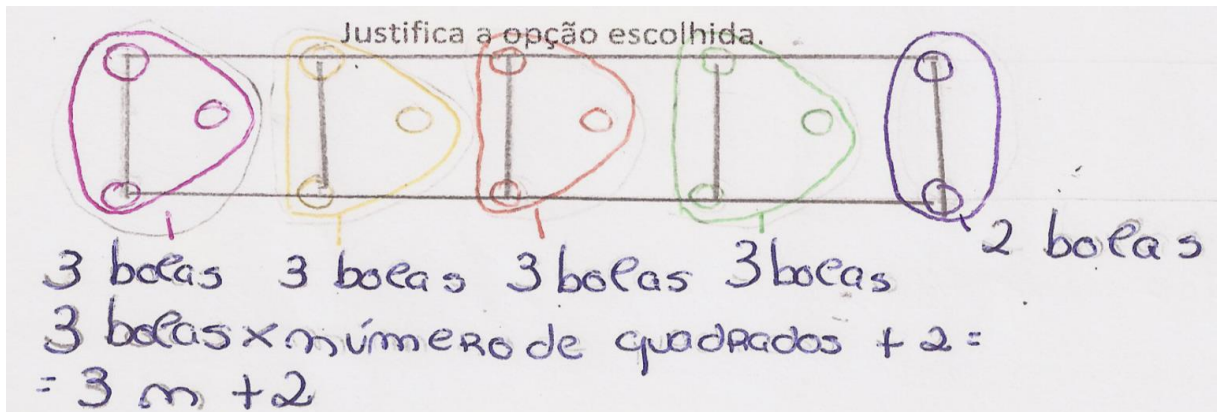 Justifica a opção escolhida.
3 bolas 3 bolas 3 bolas 3 bolas 2 bolas
3 bolas × número de quadrados + 2 =
= 3 n + 2